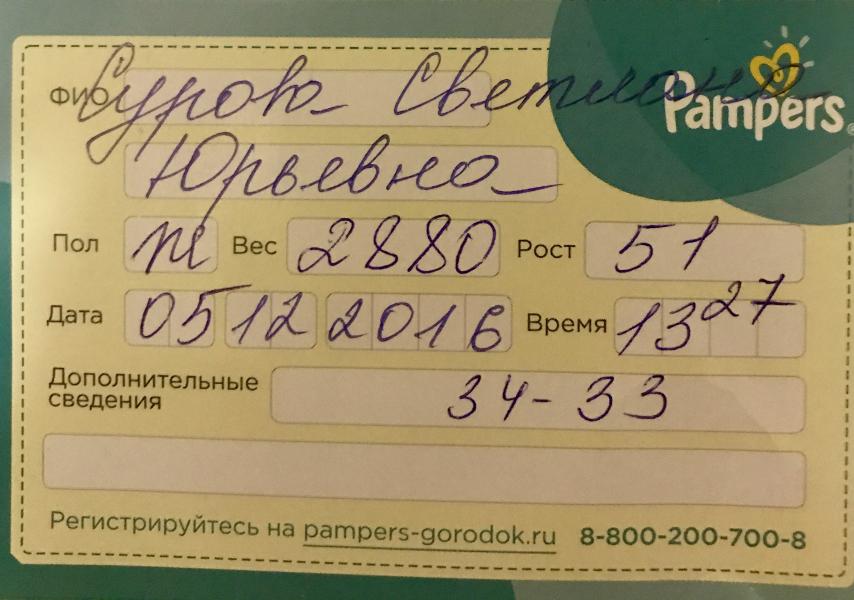 Pampers
ФИО Сурова Светлана
Юрьевна
Пол ж Вес 2880 Рост 51
Дата 05 12 2016 Время 13 27
Дополнительные сведения 34-33
Регистрируйтесь на pampers-gorodok.ru 8-800-200-700-8